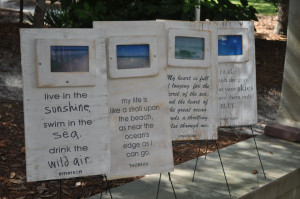 live in the
sunshine,
swim in the
sea,
drink the
wild air.
emerson
my life is
like a stroll upon
the beach,
as near the
ocean's
edge as i
can go.
thoreau
My heart is full
of longing for the
secret of the sea,
and the heart of
the great ocean
sends a thrilling
pulse through me.